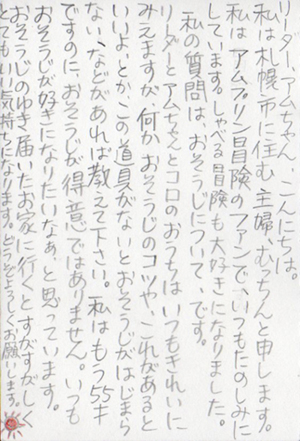 リーダー、アムちゃん、こんにちは。
私は札幌市に住む主婦、むっちんと申します。
私はアムプリン冒険のファンで、いつもたのしみに
しています。しゃべる冒険も大好きになりました。
私の質問は、おそうじについて、です。
リーダーとアムちゃんとコロのおうちはいつもきれいに
みえますが、何かおそうじのコツや、これがあると
いいよ、とかこの道具がないとおそうじがはじまら
ない、などがあれば教えて下さい。私はもう55才
ですのに、おそうじが得意ではありません。いつも
おそうじが好きになりたいなぁ、と思っています。
おそうじのゆき届いたお家に行くと、すがすがしく
とてもいい気持ちになります。どうぞよろしくお願いします。